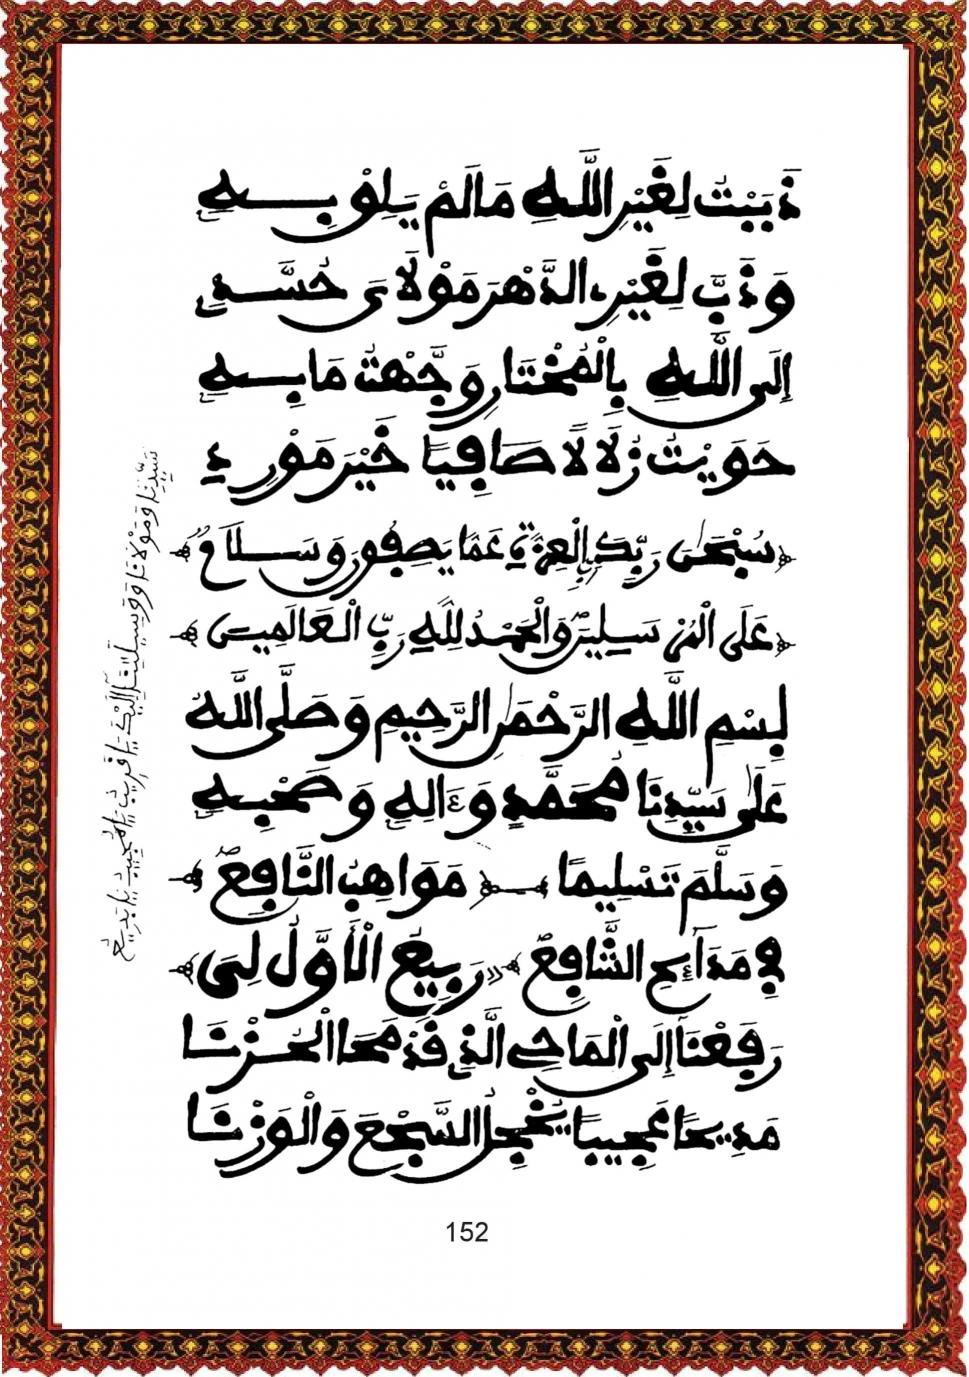 ذَبَّيْتَ لِغَيْرِ اللَّهِ مَا لَمْ يَلِقْ بِهِ
وَذَبَّ لِغَيْرِ الدَّهْرَ مَوْلَايَ حُسَّدِي
إِلَى اللَّهِ بِالْمُخْتَارِ وَجَّهْتُ مَا بِهِ
حَوَيْتُ زُلَالًا صَافِيًا خَيْرَ مَوْرِدِ
سُبْحَٰنَ رَبِّكَ رَبِّ الْعِزَّةِ عَمَّا يَصِفُونَ وَسَلَامٌ
عَلَى الْمُرْسَلِينَ وَالْحَمْدُ لِلَّهِ رَبِّ الْعَالَمِينَ
بِسْمِ اللَّهِ الرَّحْمَٰنِ الرَّحِيمِ وَصَلَّى اللَّهُ
عَلَى سَيِّدِنَا مُحَمَّدٍ وَءَالِهِ وَصَحْبِهِ
وَسَلَّمَ تَسْلِيمًا مَوَاهِبُ النَّافِعِ
فِي مَدَائِحِ الشَّافِعِ رَبِيعُ الْأَوَّلُ لِيَ
رَفَعْنَا إِلَى الْمَاحِي الَّذِي قَدْ مَحَا الْحُزْنَا
مَدِيحًا عَجِيبًا يُخْجِلُ السَّجْعَ وَالْوَزْنَا
152
سَيِّدِنَا وَمَوْلَانَا وَوَسِيلَتِنَا إِلَيْكَ يَا قَرِيبُ يَا مُجِيبُ يَا بَدِيعُ